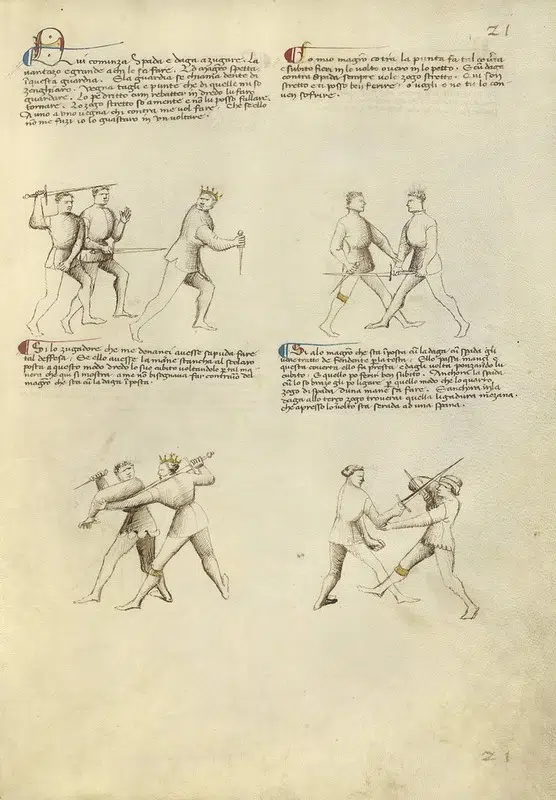 21
Qui cominza Spada e daga a zugare. Lo
vantazo e grande a chi lo sa fare. Lo Magro spetta
in questa guardia. E la guardia se chiama dente di
zenghiaro. Vegna tagli e punte che di quelle mi so
guardare. Lo pe dritto cum rebatter in dredo lo faro
tornare. Lo zogo stretto so a mente e no lu posso fallare.
A uno a uno vegna chi contra me vol fare. Che se ello
no me fuzi io lo guastaro in un voltare.
Lo mio magro contra la punta fa tal coverta
e subito fieri in lo volto overo in lo petto. E cum daga
contra spada sempre vole zogo stretto. Qui son
stretto e ti posso ben ferire. o vogli o no tu lo con
ven sofrire.
Si lo zugadore che me denanci avesse sapuda fare
tal deffesa. Se ello avesse la mane stancha al scolaro
posta a questo modo dredo lo suo cubito voltandolo per tal ma
nera che qui si mostra. a me no bisegnava far contrario del
magro che sta cum la daga in posta.
Si alo magro che sta in posta cum la daga cum spada gli
vene tratto de fendente per la testa. Ello passa innanci e
questa coverta ello fa presta. e dagli volta penzando lu
cubito. E quello po ferir ben subito. Anchora la spada
cum lo so brazo gli po ligare per quello modo che lo quarto
zogo di spada d'una mane sa fare. E anchora in la
daga allo terzo zogo troverai quella ligadura mezana.
che apresso lo volto sta serada ad una spana.
21